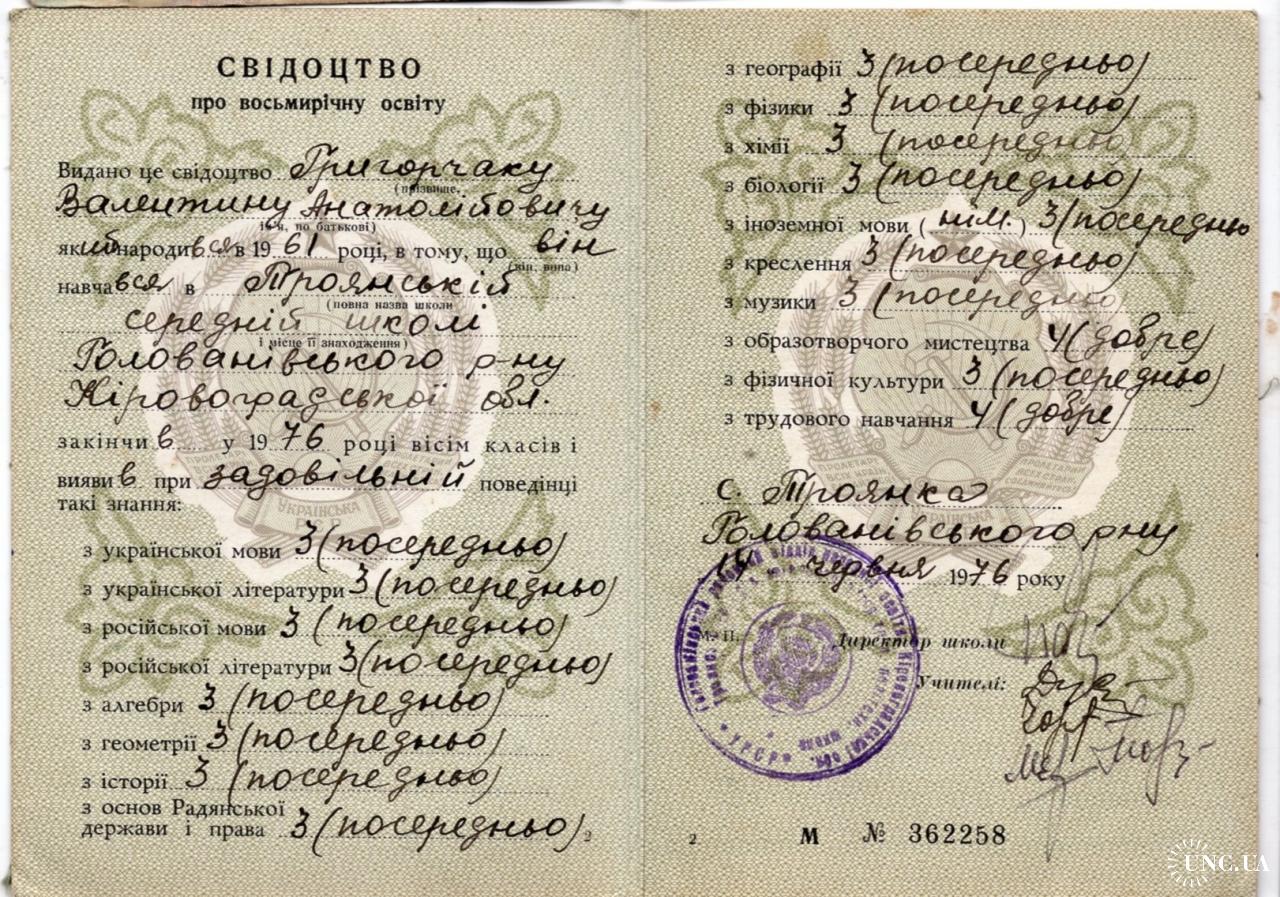 СВІДОЦТВО
про восьмирічну освіту
Видано це свідоцтво Григорчаку
(прізвище,
Валентину Анатолійовичу
ім'я, по батькові)
який народився в 1961 році, в тому, що він
(він, вона)
навчався в Троянській
(повна назва школи
середній школі
і місце її знаходження)
Голованівського р-ну
Кіровоградської обл.
закінчив у 1976 році вісім класів і
виявив при задовільній поведінці
такі знання:
з української мови 3 (посередньо)
з української літератури 3 (посередньо)
з російської мови 3 (посередньо)
з російської літератури 3 (посередньо)
з алгебри 3 (посередньо)
з геометрії 3 (посередньо)
з історії 3 (посередньо)
з основ Радянської
держави і права 3 (посередньо)
2
з географії 3 (посередньо)
з фізики 3 (посередньо)
з хімії 3 (посередньо)
з біології 3 (посередньо)
з іноземної мови (нім.) 3 (посередньо)
з креслення 3 (посередньо)
з музики 3 (посередньо)
з образотворчого мистецтва 4 (добре)
з фізичної культури 3 (посередньо)
з трудового навчання 4 (добре)
с. Троянка
Голованівського р-ну
14 червня 1976 року
М. П.
Директор школи
Учителі:
2
М № 362258
УКРАЇНСЬКА
УРСР
UNC.UA